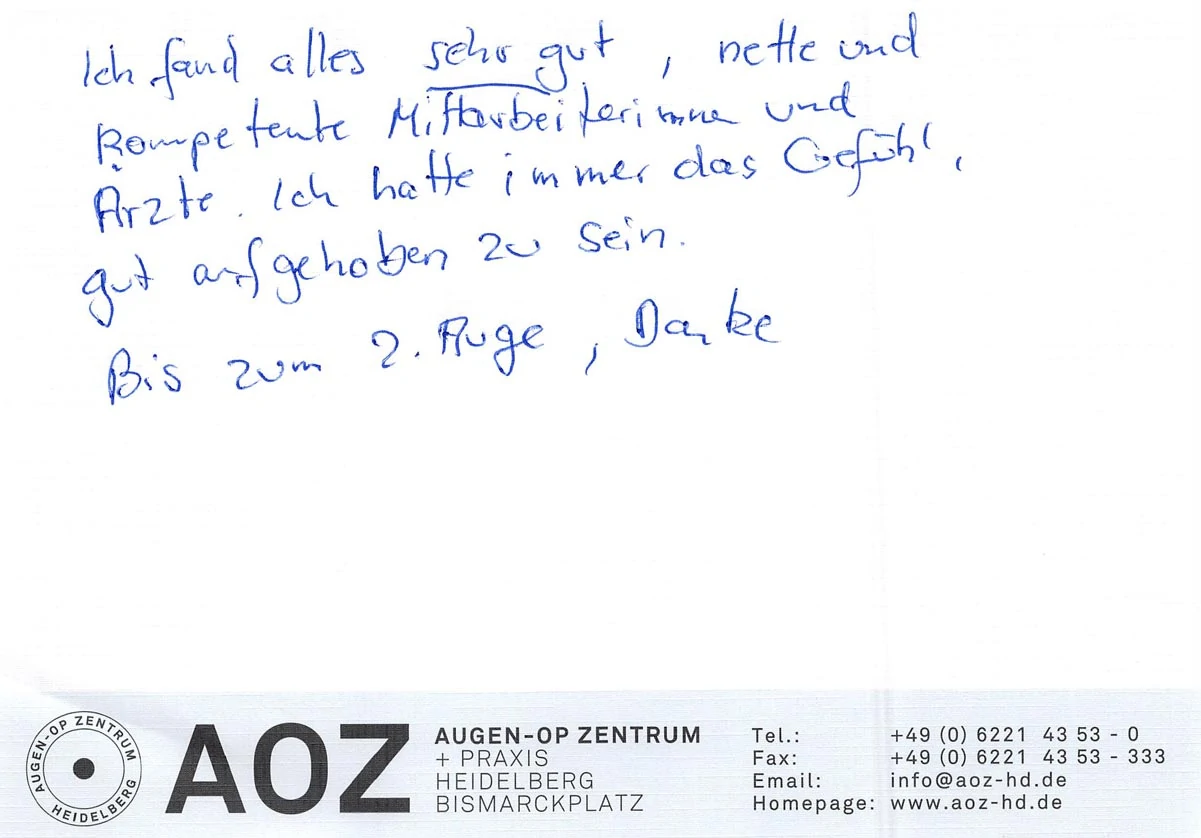 Ich fand alles sehr gut, nette und
kompetente Mitarbeiterinnen und
Ärzte. Ich hatte immer das Gefühl,
gut aufgehoben zu sein.
Bis zum 2. Auge, Danke
AUGEN-OP ZENTRUM HEIDELBERG
AOZ
AUGEN-OP ZENTRUM
+ PRAXIS
HEIDELBERG
BISMARCKPLATZ
Tel.: +49 (0) 6221 43 53 - 0
Fax: +49 (0) 6221 43 53 - 333
Email: info@aoz-hd.de
Homepage: www.aoz-hd.de